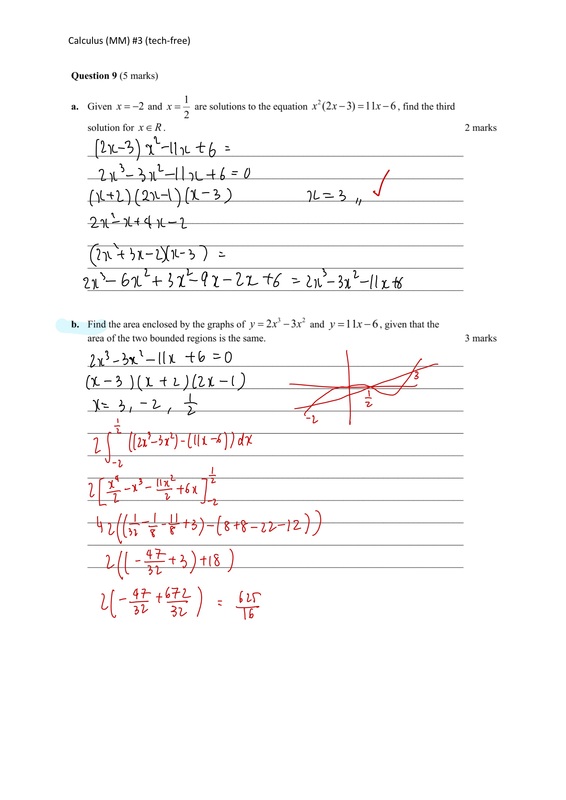 Calculus (MM) #3 (tech-free)
Question 9 (5 marks)
a. Given x = −2 and x = 1/2 are solutions to the equation x²(2x − 3) = 11x − 6, find the third
solution for x ∈ R. 2 marks
(2x−3) x² −11x + 6 =
2x³ − 3x² − 11x + 6 = 0
(x+2)(2x−1)(x−3) x = 3 ,, ✓
2x² − x + 4x − 2
(2x² + 3x − 2)(x−3) =
2x³ − 6x² + 3x² − 9x − 2x + 6 = 2x³ − 3x² − 11x + 6
b. Find the area enclosed by the graphs of y = 2x³ − 3x² and y = 11x − 6, given that the
area of the two bounded regions is the same. 3 marks
2x³ − 3x² − 11x + 6 = 0
(x − 3)(x + 2)(2x − 1)
x = 3, −2, 1/2
−2 1/2 3
2 ∫_{−2}^{1/2} ((2x³−3x²) − (11x−6)) dx
2 [x⁴/2 − x³ − 11x²/2 + 6x]_{−2}^{1/2}
2((1/32 − 1/8 − 11/8 + 3) − (8+8−22−12))
2((−47/32 + 3) + 18)
2(−47/32 + 672/32) = 625/16